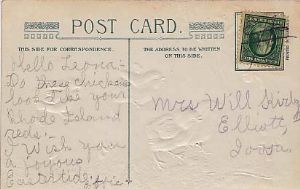 POST CARD.
THIS SIDE FOR CORRESPONDENCE.
THE ADDRESS TO BE WRITTEN
ON THIS SIDE.
Hello Leona:-
Do these chickens
look like your
Rhode Island
Reds:-
I Wish you
a joyous
Eastertide:- Effie
Mrs Will
Elliott,
Iowa.